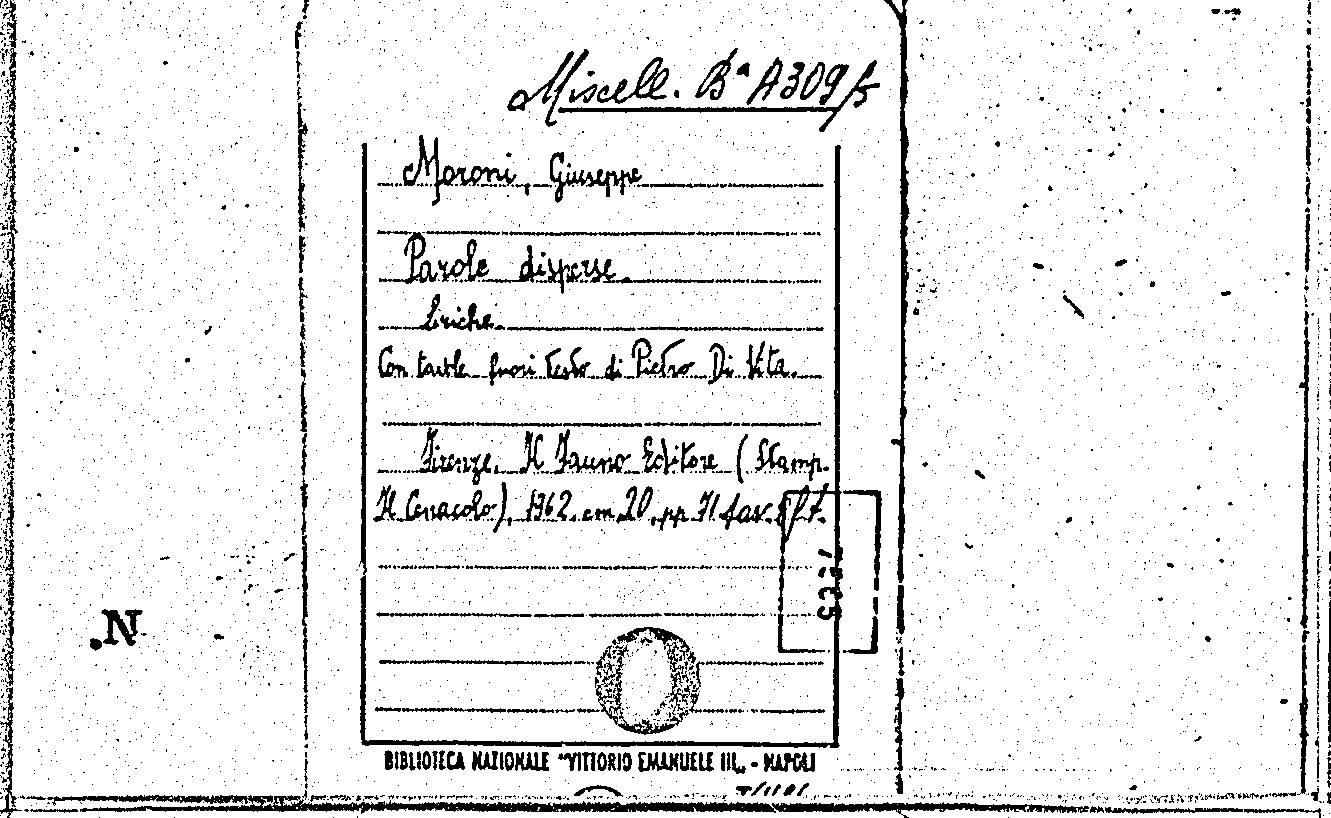 Miscell. Bª A309/5
Moroni, Giuseppe
Parole disperse.
Liriche.
Con tavole fuori testo di Pietro Di Vita.
Firenze, Il Fauno Editore (Stamp.
Il Cenacolo), 1962, cm. 20, pp. 71 tav. f.t.
N.
BIBLIOTECA NAZIONALE "VITTORIO EMANUELE III„ - NAPOLI